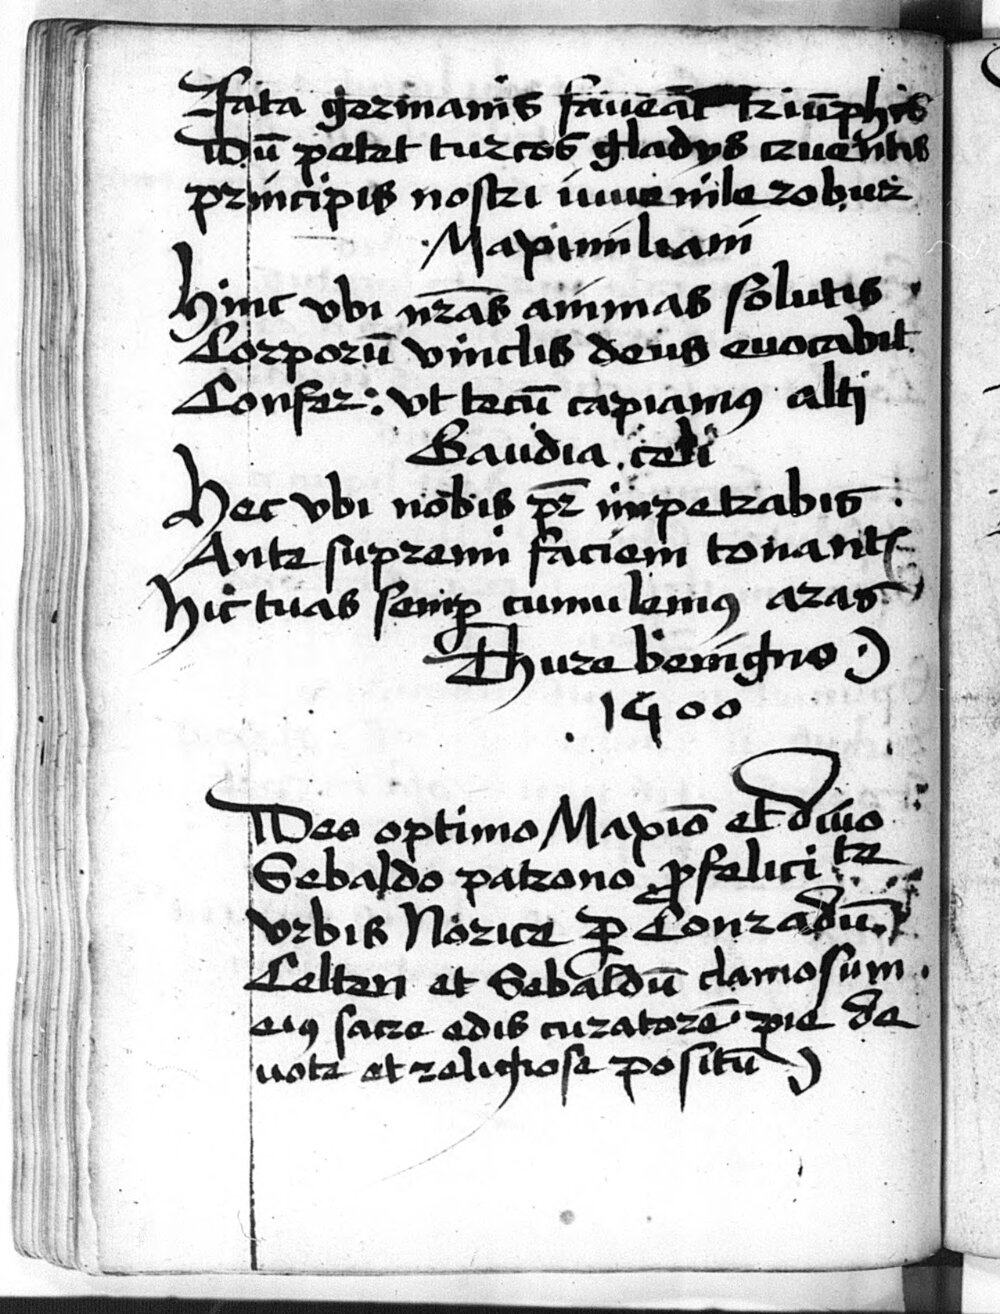 Fata germanis faveāt triūphis
Dū petet turcos gladys cruentis
principis nostri iuuenile robur
Maximiliani
Hinc vbi nr̄as animas solutis
Corporū vinclis deus euocabit
Confer: vt tecū capiamꝰ alti
Gaudia celi
Hec vbi nobis pr̄ impetrabis
Ante supremi faciem tonantis
Hic tuas semꝑ cumulemꝰ aras
Thure benigno
1500
Deo optimo Maxīo et diuo
Sebaldo patrono ꝓ felici te
vrbis Norice ꝑ Conradū
Celten et Sebaldū clamosum
eiꝰ sacre edis curatorē pie de
uote et religiose positū